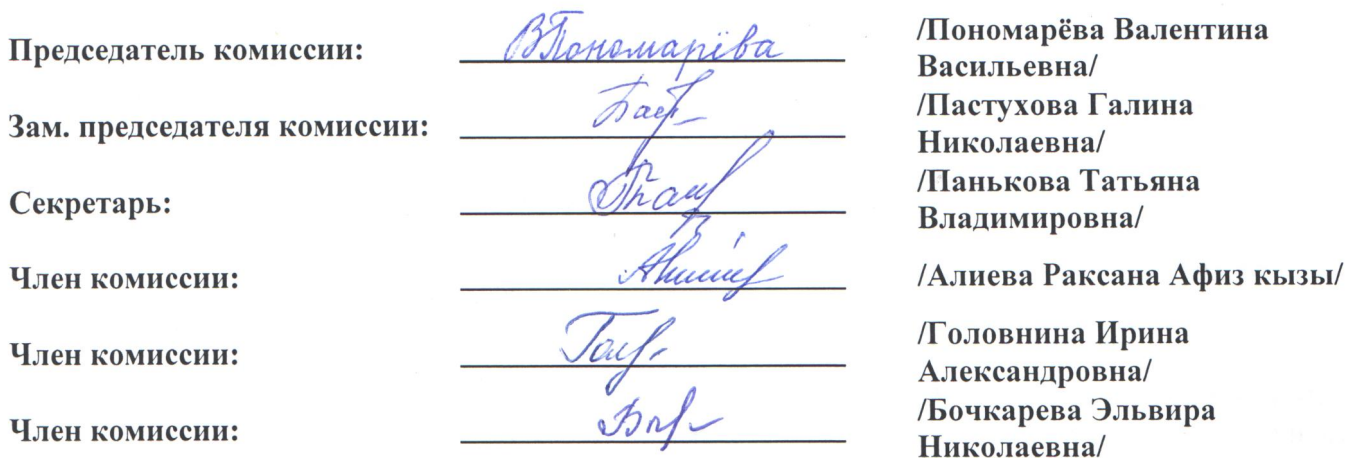 Председатель комиссии: ВПономарёва /Пономарёва Валентина
Васильевна/
Зам. председателя комиссии: /Пастухова Галина
Николаевна/
Секретарь: /Панькова Татьяна
Владимировна/
Член комиссии: /Алиева Раксана Афиз кызы/
Член комиссии: /Головнина Ирина
Александровна/
Член комиссии: /Бочкарева Эльвира
Николаевна/